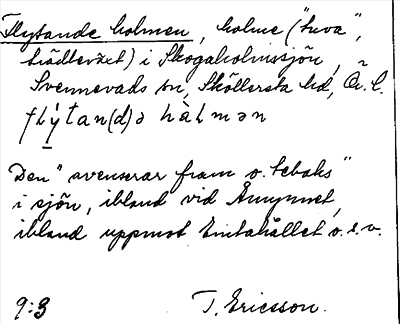 Flytande holmen, holme ("tuva",
trädbevxet) i Skogaholmssjön,
Svennevads sn, Sköllersta hd, Ör. l.
flýtan(d)ə hàlmən
Den "avenserar fram o. tebaks"
i sjön, ibland vid Åmynnet,
ibland uppmot Eintahållet o.s.v.
9:3 T. Ericsson.